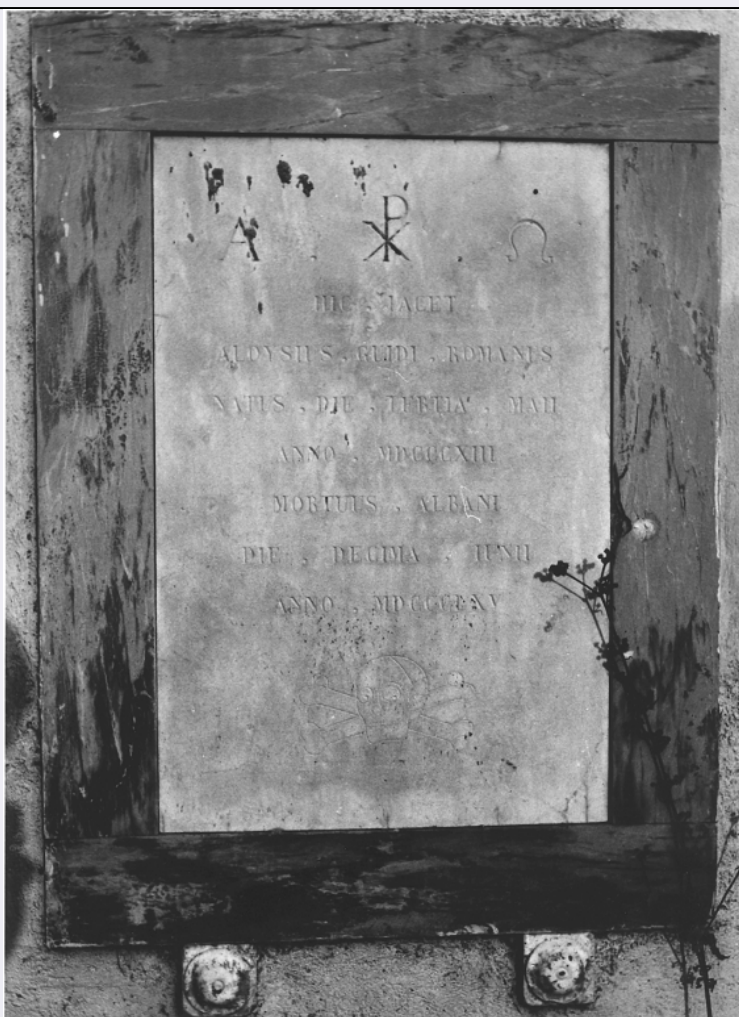 A . ☧ . Ω
HIC . IACET
ALOYSIUS . GUIDI . ROMANUS
NATUS . DIE . TERTIA . MAII
ANNO .
MORTUUS . ALBANI
DIE . DECIMA . IUNII
ANNO .